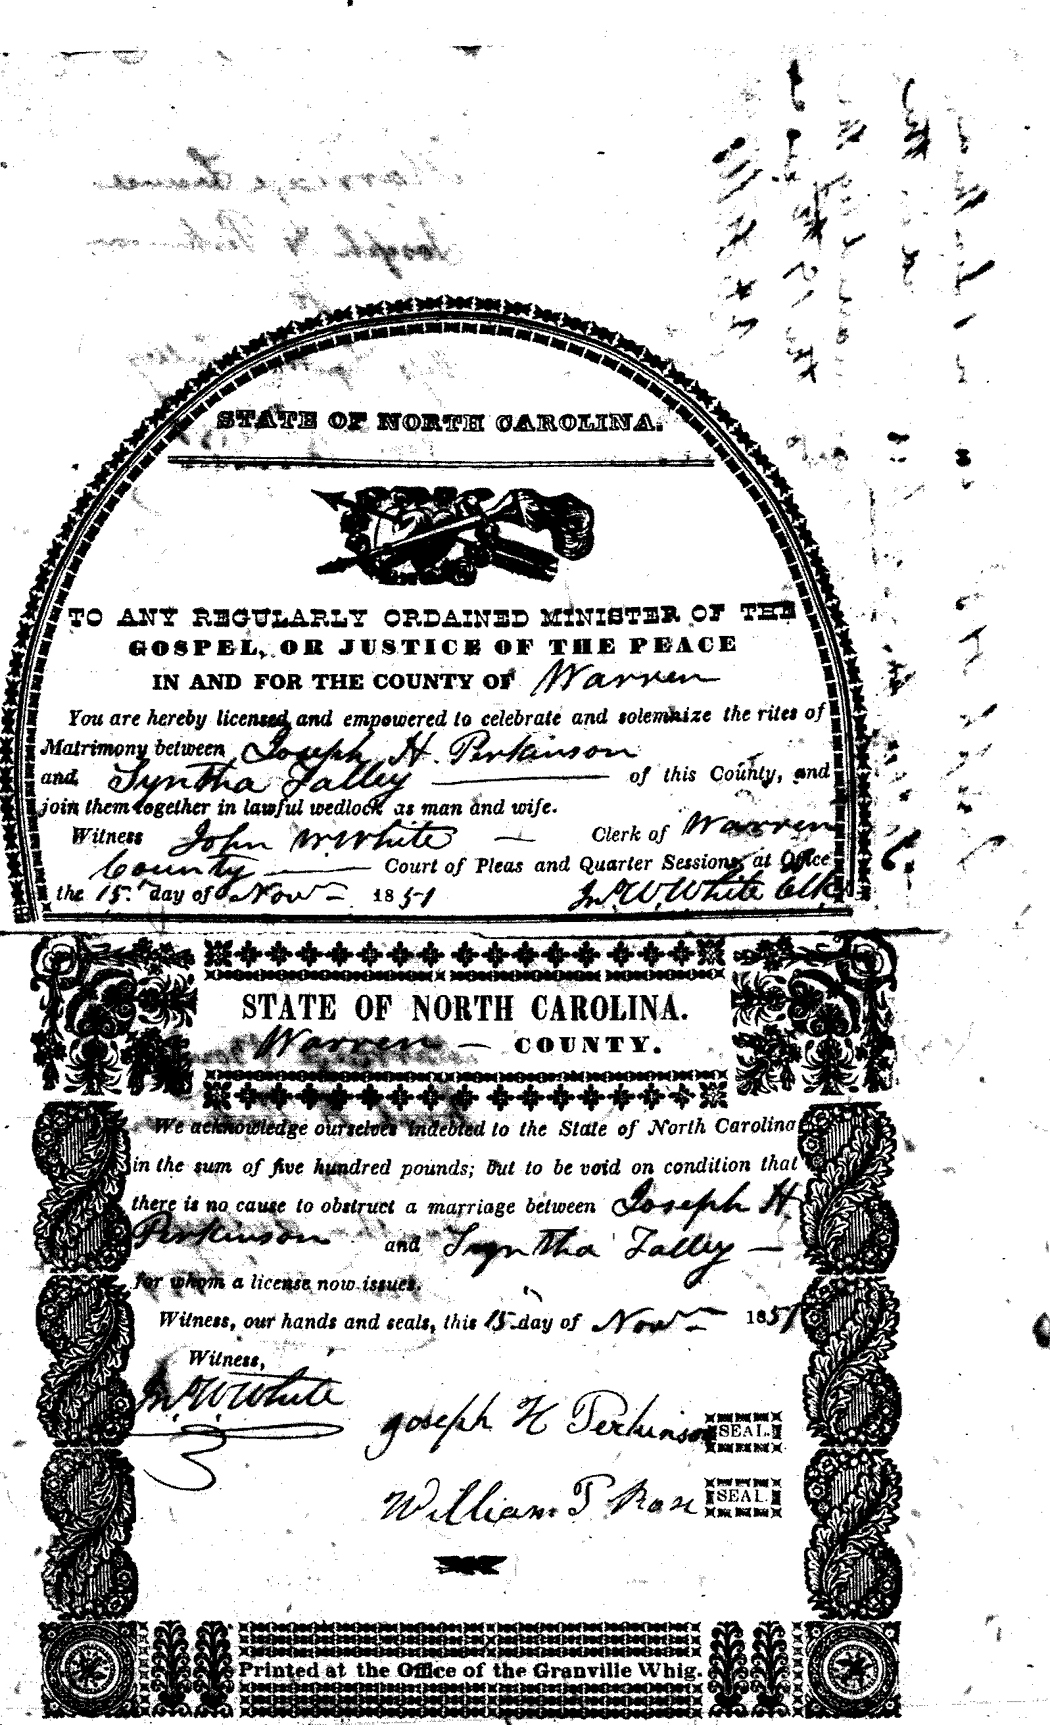 STATE OF NORTH CAROLINA.
TO ANY REGULARLY ORDAINED MINISTER OF THE
GOSPEL, OR JUSTICE OF THE PEACE
IN AND FOR THE COUNTY OF Warren
You are hereby licensed and empowered to celebrate and solemnize the rites of
Matrimony between Joseph H. Perkinson
and Syntha Talley of this County, and
join them together in lawful wedlock as man and wife.
Witness John W. White — Clerk of Warren
County Court of Pleas and Quarter Sessions, at Office
the 15th day of Novr 1851 Jno. W. White Clk
STATE OF NORTH CAROLINA.
Warren — COUNTY.
We acknowledge ourselves indebted to the State of North Carolina
in the sum of five hundred pounds; but to be void on condition that
there is no cause to obstruct a marriage between Joseph H.
Perkinson and Syntha Talley —
for whom a license now issues.
Witness, our hands and seals, this 15 day of Novr 1851
Witness,
Jno. W. White
Joseph H Perkinson SEAL.
William T Rose SEAL.
Printed at the Office of the Granville Whig.